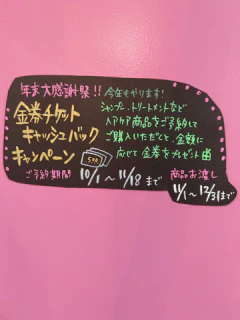 年末大感謝祭!! 今年もやります!
金券チケット
キャッシュバック
キャンペーン
500
シャンプー、トリートメントなど
ヘアケア商品をご予約して
ご購入いただくと、金額に
応じて金券をプレゼント
ご予約期間 10/1〜11/18まで
商品お渡し
11/1〜12/31まで